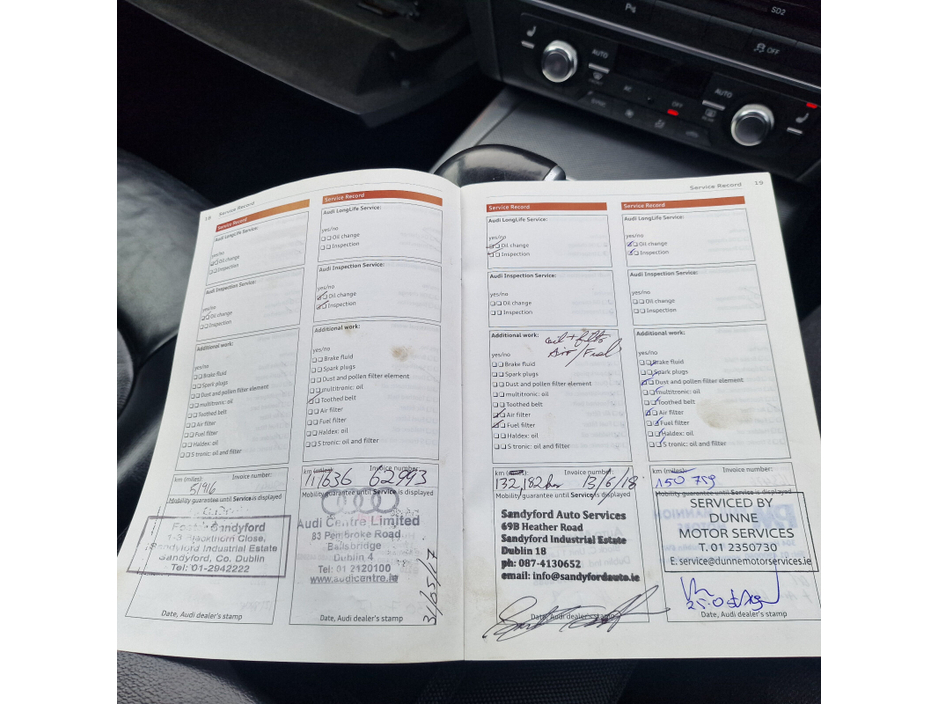 Ps
SD2
OFF
AUTO
AC
OFF
AUTO
SYNC
18 Service Record
Service Record
Audi LongLife Service:
yes/no
Oil change
Inspection
Audi Inspection Service:
yes/no
Oil change
Inspection
Additional work:
yes/no
Brake fluid
Spark plugs
Dust and pollen filter element
multitronic: oil
Toothed belt
Air filter
Fuel filter
Haldex: oil
S tronic: oil and filter
km (miles): Invoice number:
51916
Mobility guarantee until Service is displayed
Sandyford
Sandyford Industrial Estate
Sandyford, Co. Dublin
Tel: 01-2942222
Date, Audi dealer's stamp
Service Record
Audi LongLife Service:
yes/no
Oil change
Inspection
Audi Inspection Service:
yes/no
Oil change
Inspection
Additional work:
yes/no
Brake fluid
Spark plugs
Dust and pollen filter element
multitronic: oil
Toothed belt
Air filter
Fuel filter
Haldex: oil
S tronic: oil and filter
km (miles): Invoice number:
111636 62993
Mobility guarantee until Service is displayed
Audi Centre Limited
83 Pembroke Road
Ballsbridge
Dublin 4
Tel: 01 2120100
www.audicentre.ie
31/05/17
Date, Audi dealer's stamp
Service Record 19
Service Record
Audi LongLife Service:
yes/no
Oil change
Inspection
Audi Inspection Service:
yes/no
Oil change
Inspection
Additional work:
oil + filts
Air/Fuel
yes/no
Brake fluid
Spark plugs
Dust and pollen filter element
multitronic: oil
Toothed belt
Air filter
Fuel filter
Haldex: oil
S tronic: oil and filter
km Invoice number:
132,182 km 13/6/18
Mobility guarantee until Service is displayed
Sandyford Auto Services
69B Heather Road
Sandyford Industrial Estate
Dublin 18
ph: 087-4130652
email: info@sandyfordauto.ie
Date, Audi dealer's stamp
Service Record
Audi LongLife Service:
yes/no
Oil change
Inspection
Audi Inspection Service:
yes/no
Oil change
Inspection
Additional work:
yes/no
Brake fluid
Spark plugs
Dust and pollen filter element
multitronic: oil
Toothed belt
Air filter
Fuel filter
Haldex: oil
S tronic: oil and filter
km (miles): Invoice number:
150 759
Mobility guarantee until Service is displayed
SERVICED BY
DUNNE
MOTOR SERVICES
T. 01 2350730
E. service@dunnemotorservices.ie
Date, Audi dealer's stamp